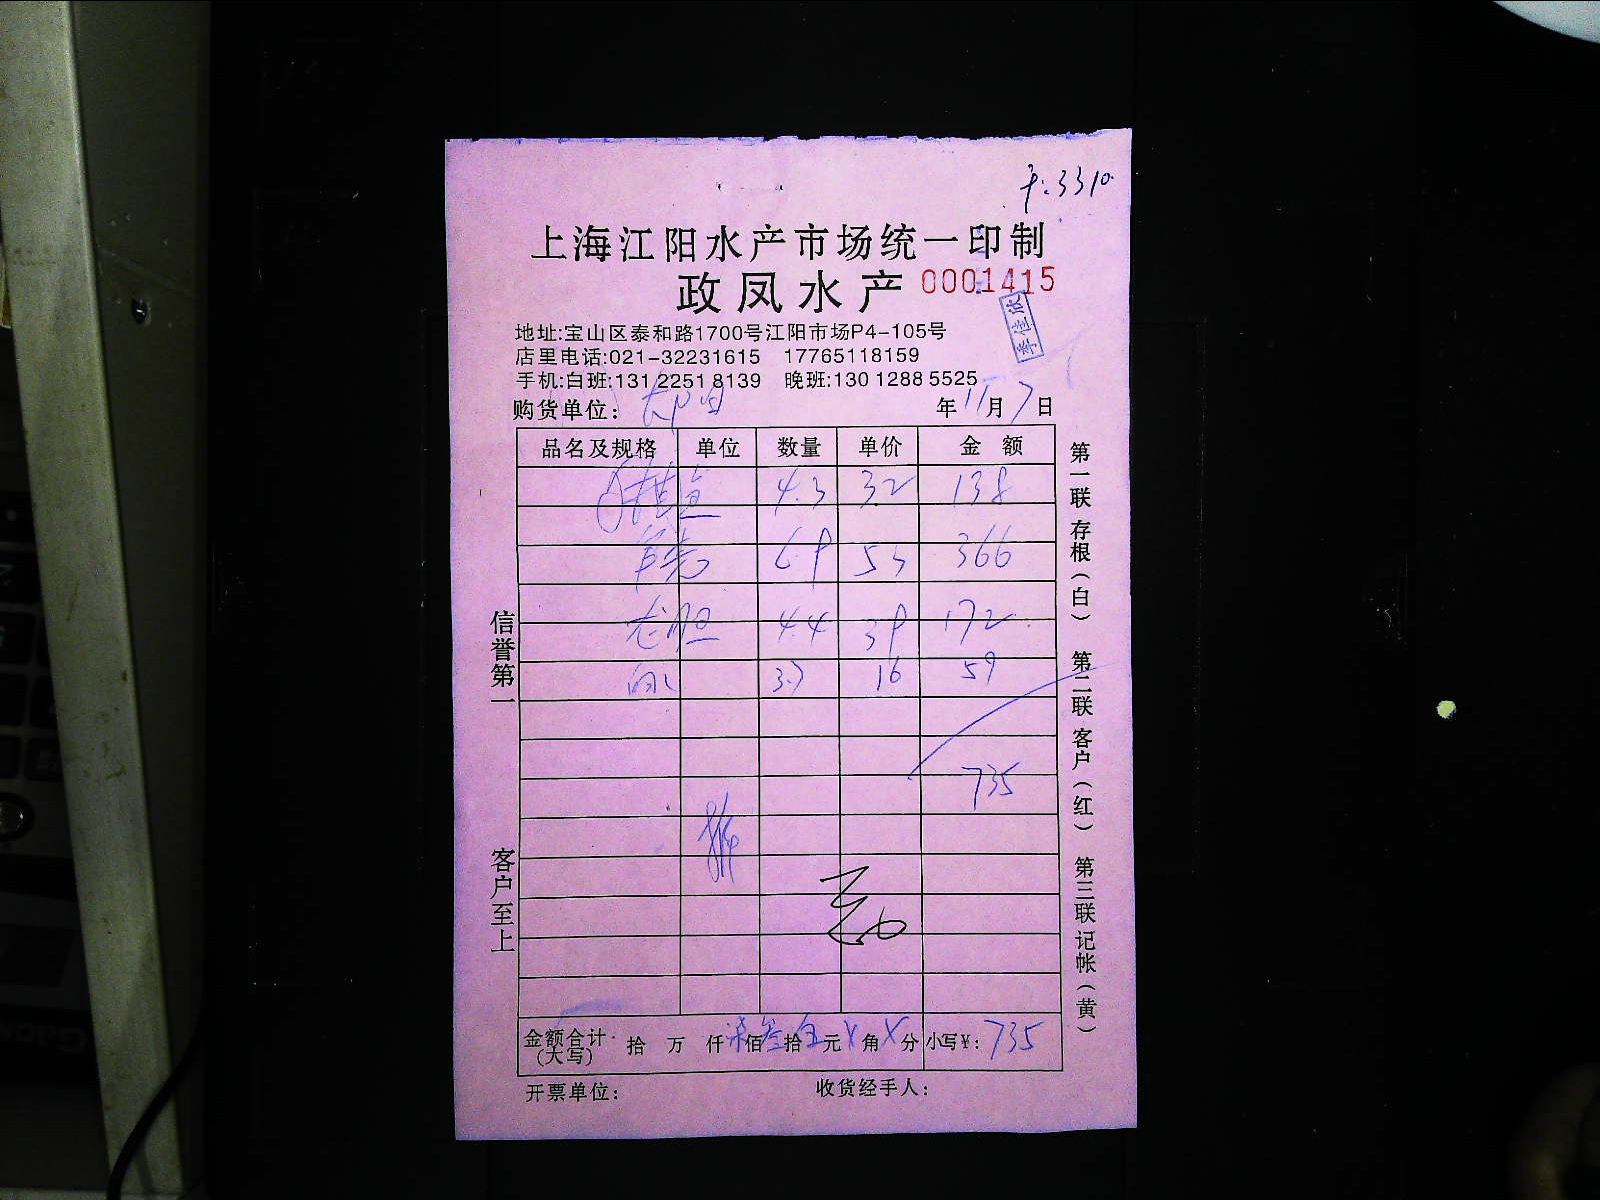 千:3310
上海江阳水产市场统一印制
政凤水产 0001415
李佳欣
地址:宝山区泰和路1700号江阳市场P4-105号
店里电话:021-32231615 17765118159
手机:白班:131 2251 8139 晚班:130 1288 5525
购货单位: 年11月7日
品名及规格 单位 数量 单价 金额
4.3 32 138
6.9 53 366
龙胆 4.4 39 172
3.7 16 59
735
金额合计(大写) 拾 万 仟 柒佰叁拾伍元 角 分 小写¥: 735
开票单位: 收货经手人:
信誉第一 客户至上
第一联存根(白) 第二联客户(红) 第三联记帐(黄)